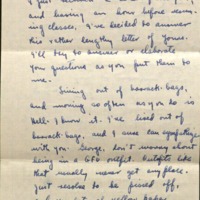 and having an hour before resum-
ing classes, I've decided to answer
this rather lengthy letter of yours.
I'll try to answer or elaborate
your questions as you put them to
me.
Living out of barrack-bags,
and moving as often as you do is
Hell. I know it. I've lived out of
barrack-bags, and I sure can sympathize
with you. George, don't worry about
being in a GFU outfit. Outfits like
that usually never get any place.
Just resolve to be pissed off,